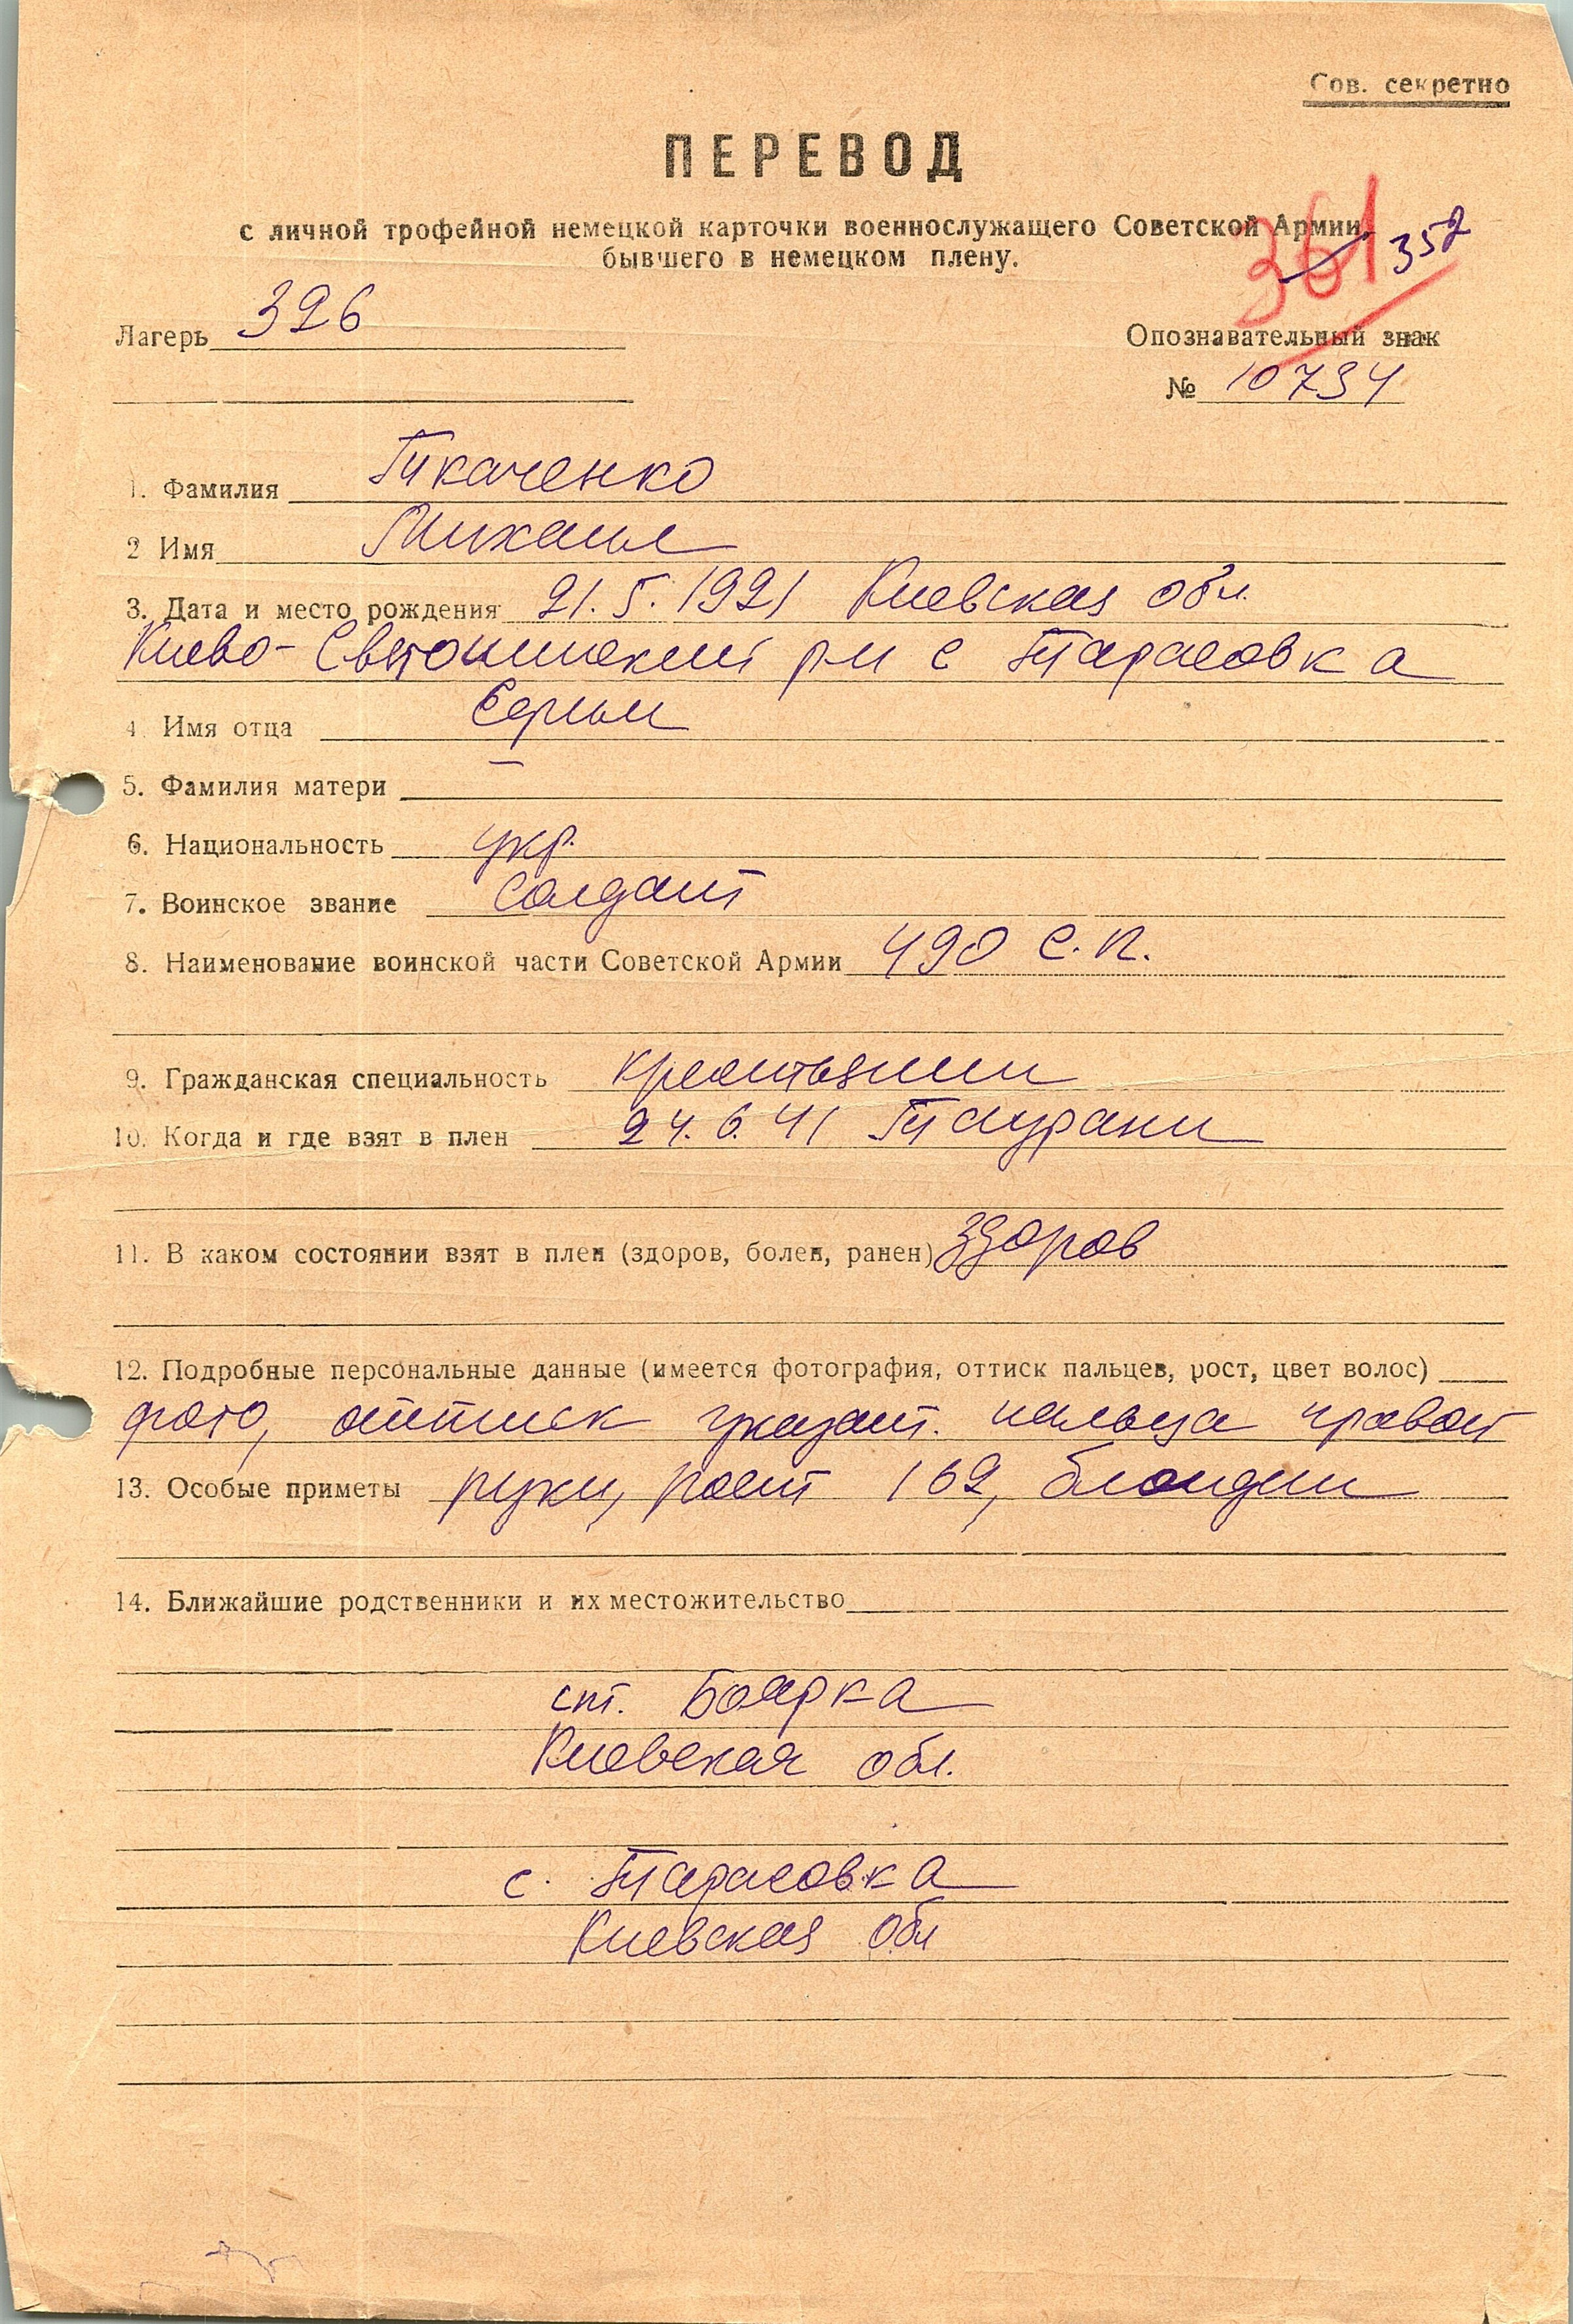 Сов. секретно
ПЕРЕВОД
с личной трофейной немецкой карточки военнослужащего Советской Армии,
бывшего в немецком плену.
361 352
Лагерь 326
Опознавательный знак
№ 10734
1. Фамилия Ткаченко
2 Имя Михаил
3. Дата и место рождения 21.5.1921 Киевская обл.
Киево-Святошинский р-н с Тарасовка
4. Имя отца
5. Фамилия матери —
6. Национальность укр.
7. Воинское звание Солдат
8. Наименование воинской части Советской Армии 490 с.п.
9. Гражданская специальность крестьянин
10. Когда и где взят в плен 24.6.41 Таураги
11. В каком состоянии взят в плен (здоров, болен, ранен) здоров
12. Подробные персональные данные (имеется фотография, оттиск пальцев, рост, цвет волос)
фото, оттиск указат. пальца правой
13. Особые приметы руки, рост 169, блондин
14. Ближайшие родственники и их местожительство
ст. Боярка
Киевская обл.
с. Тарасовка
Киевская обл